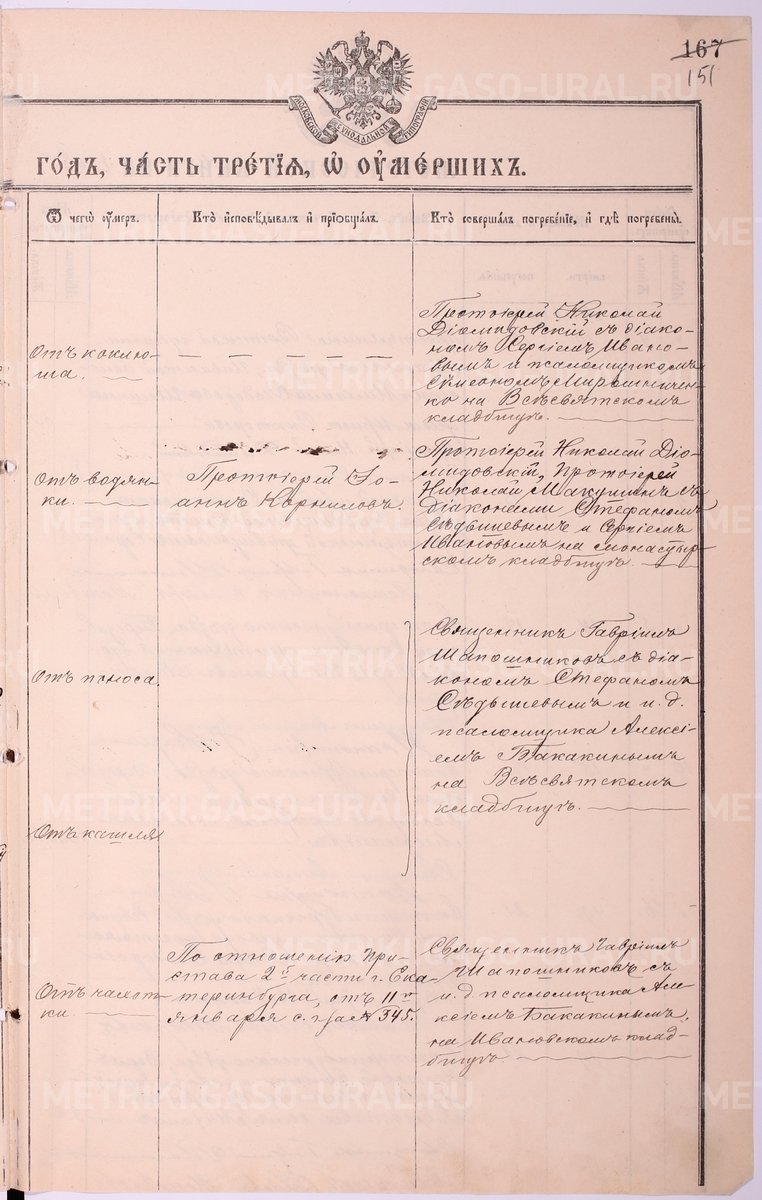 167
151
МОСКОВСКОЙ СѴНОДАЛЬНОЙ ТИПОГРАФІИ
METRIKI.GASO-URAL.RU
ГО́ДЪ, ЧА́СТЬ ТРЕ́ТІѦ, Ѡ҆ ОУ҆МЕ́РШИХЪ.
Ѿ чегѡ̀ оу҆́меръ.
Кто̀ и҆сповѣ́дывалъ и҆ прїѻбща́лъ.
Кто̀ соверша́лъ погребе́нїе, и҆ гдѣ̀ погребены̀.
Отъ коклю-
ша.
— — — — — —
Протоіерей Николай
Діомидовскій съ діако-
номъ Сергіемъ Ивано-
вымъ и псаломщикомъ
Сѵмеономъ Мирошничен-
ко на Всѣсвятскомъ
кладбищѣ.
Отъ водян-
ки.
Протоіерей Іо-
аннъ Корниловъ.
Протоіерей Николай Діо-
мидовскій, протоіерей
Николай Макушинъ съ
діаконами Стефаномъ
Сѣдышевымъ и Сергіемъ
Ивановымъ на монастыр-
скомъ кладбищѣ.
Отъ поноса.
Священникъ Гавріилъ
Шапошниковъ съ діа-
кономъ Стефаномъ
Сѣдышевымъ и и. д.
псаломщика Алексі-
емъ Бакакинымъ
на Всѣсвятскомъ
кладбищѣ.
Отъ кашля
Отъ чахот-
ки.
По отношенію при-
става 2й части г. Ека-
теринбурга, отъ 11го
января с. г. за № 345.
Священникъ Гавріилъ
Шапошниковъ съ
и. д. псаломщика Але-
ксіемъ Бакакинымъ,
на Ивановскомъ клад-
бищѣ